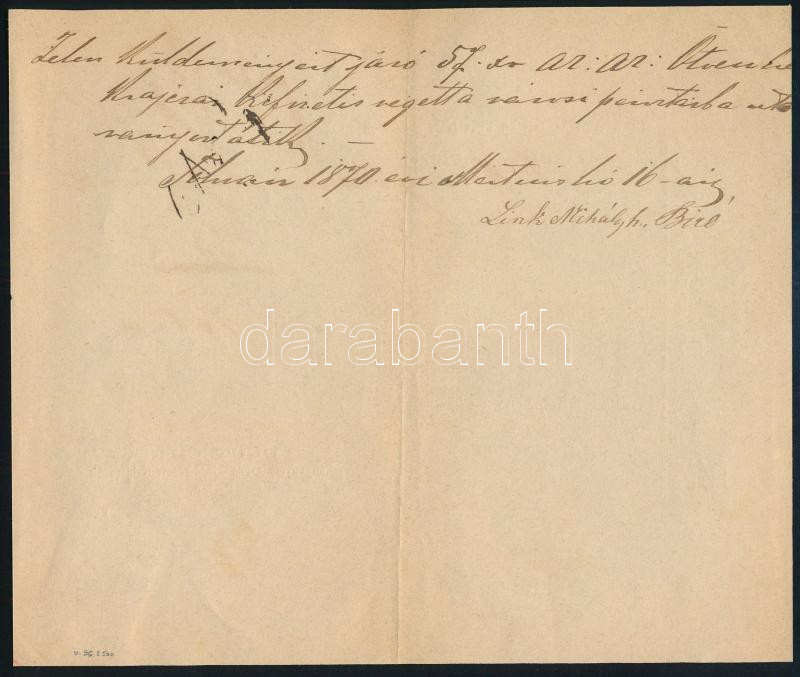 Jelen Küldeményért járó 57. xr az: az: Ötvenhe
Krajczár Kifizetés végett a városi pénztárba ut
ványoztatik. —
1870 évi Martius hó 16-án
Link Mihály h. Biró
darabanth